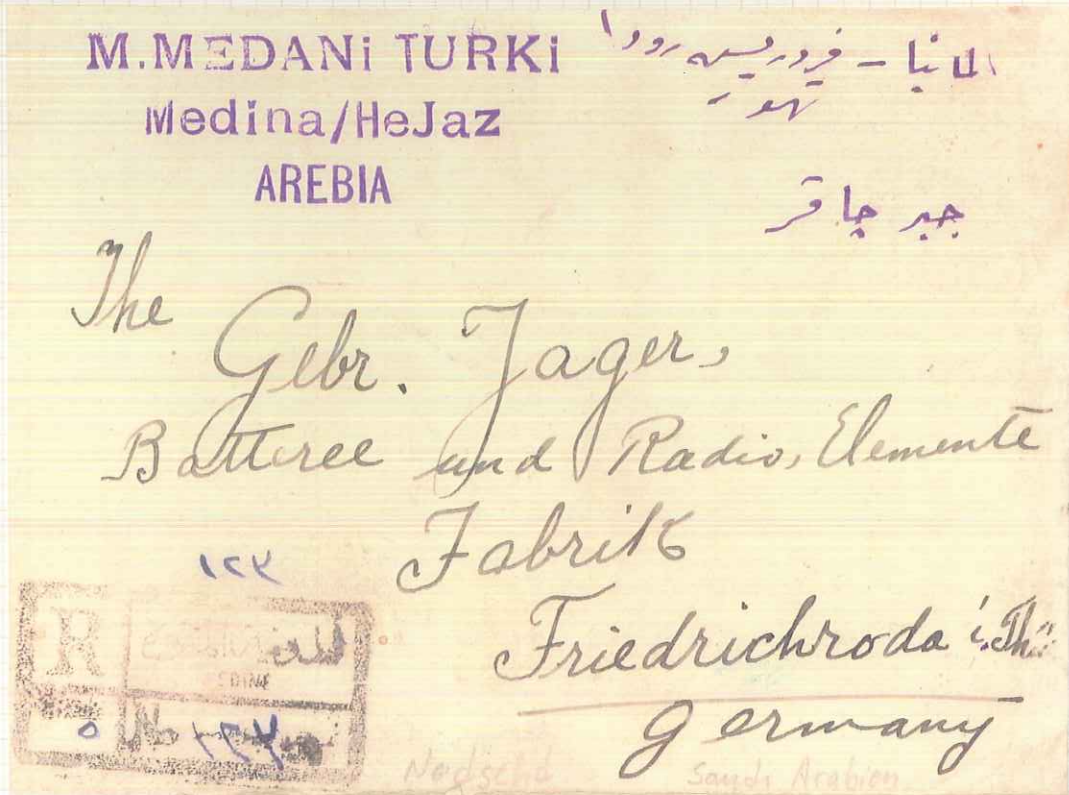 M.MEDANi TURKi
Medina/HeJaz
AREBIA
المانيا - رودا
جبر چاقر
The
Gebr. Jager,
Batteree und Radio, Elemente
Fabrik
Friedrichroda i. Thü
Germany
R
No
٥
Nedschd Saudi Arabien